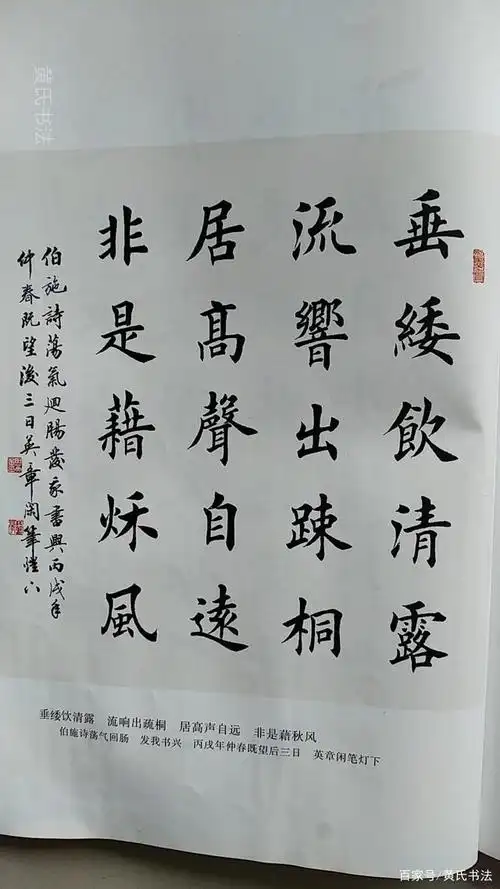 黄氏书法
垂緌飲清露
流響出踈桐
居髙聲自遠
非是藉秌風
伯施詩蕩氣迴腸發我書興丙戌年
仲春既望後三日英章閑筆燈下
垂緌饮清露 流响出疏桐 居高声自远 非是藉秋风
伯施诗荡气回肠 发我书兴 丙戌年仲春既望后三日 英章闲笔灯下
百家号/黄氏书法